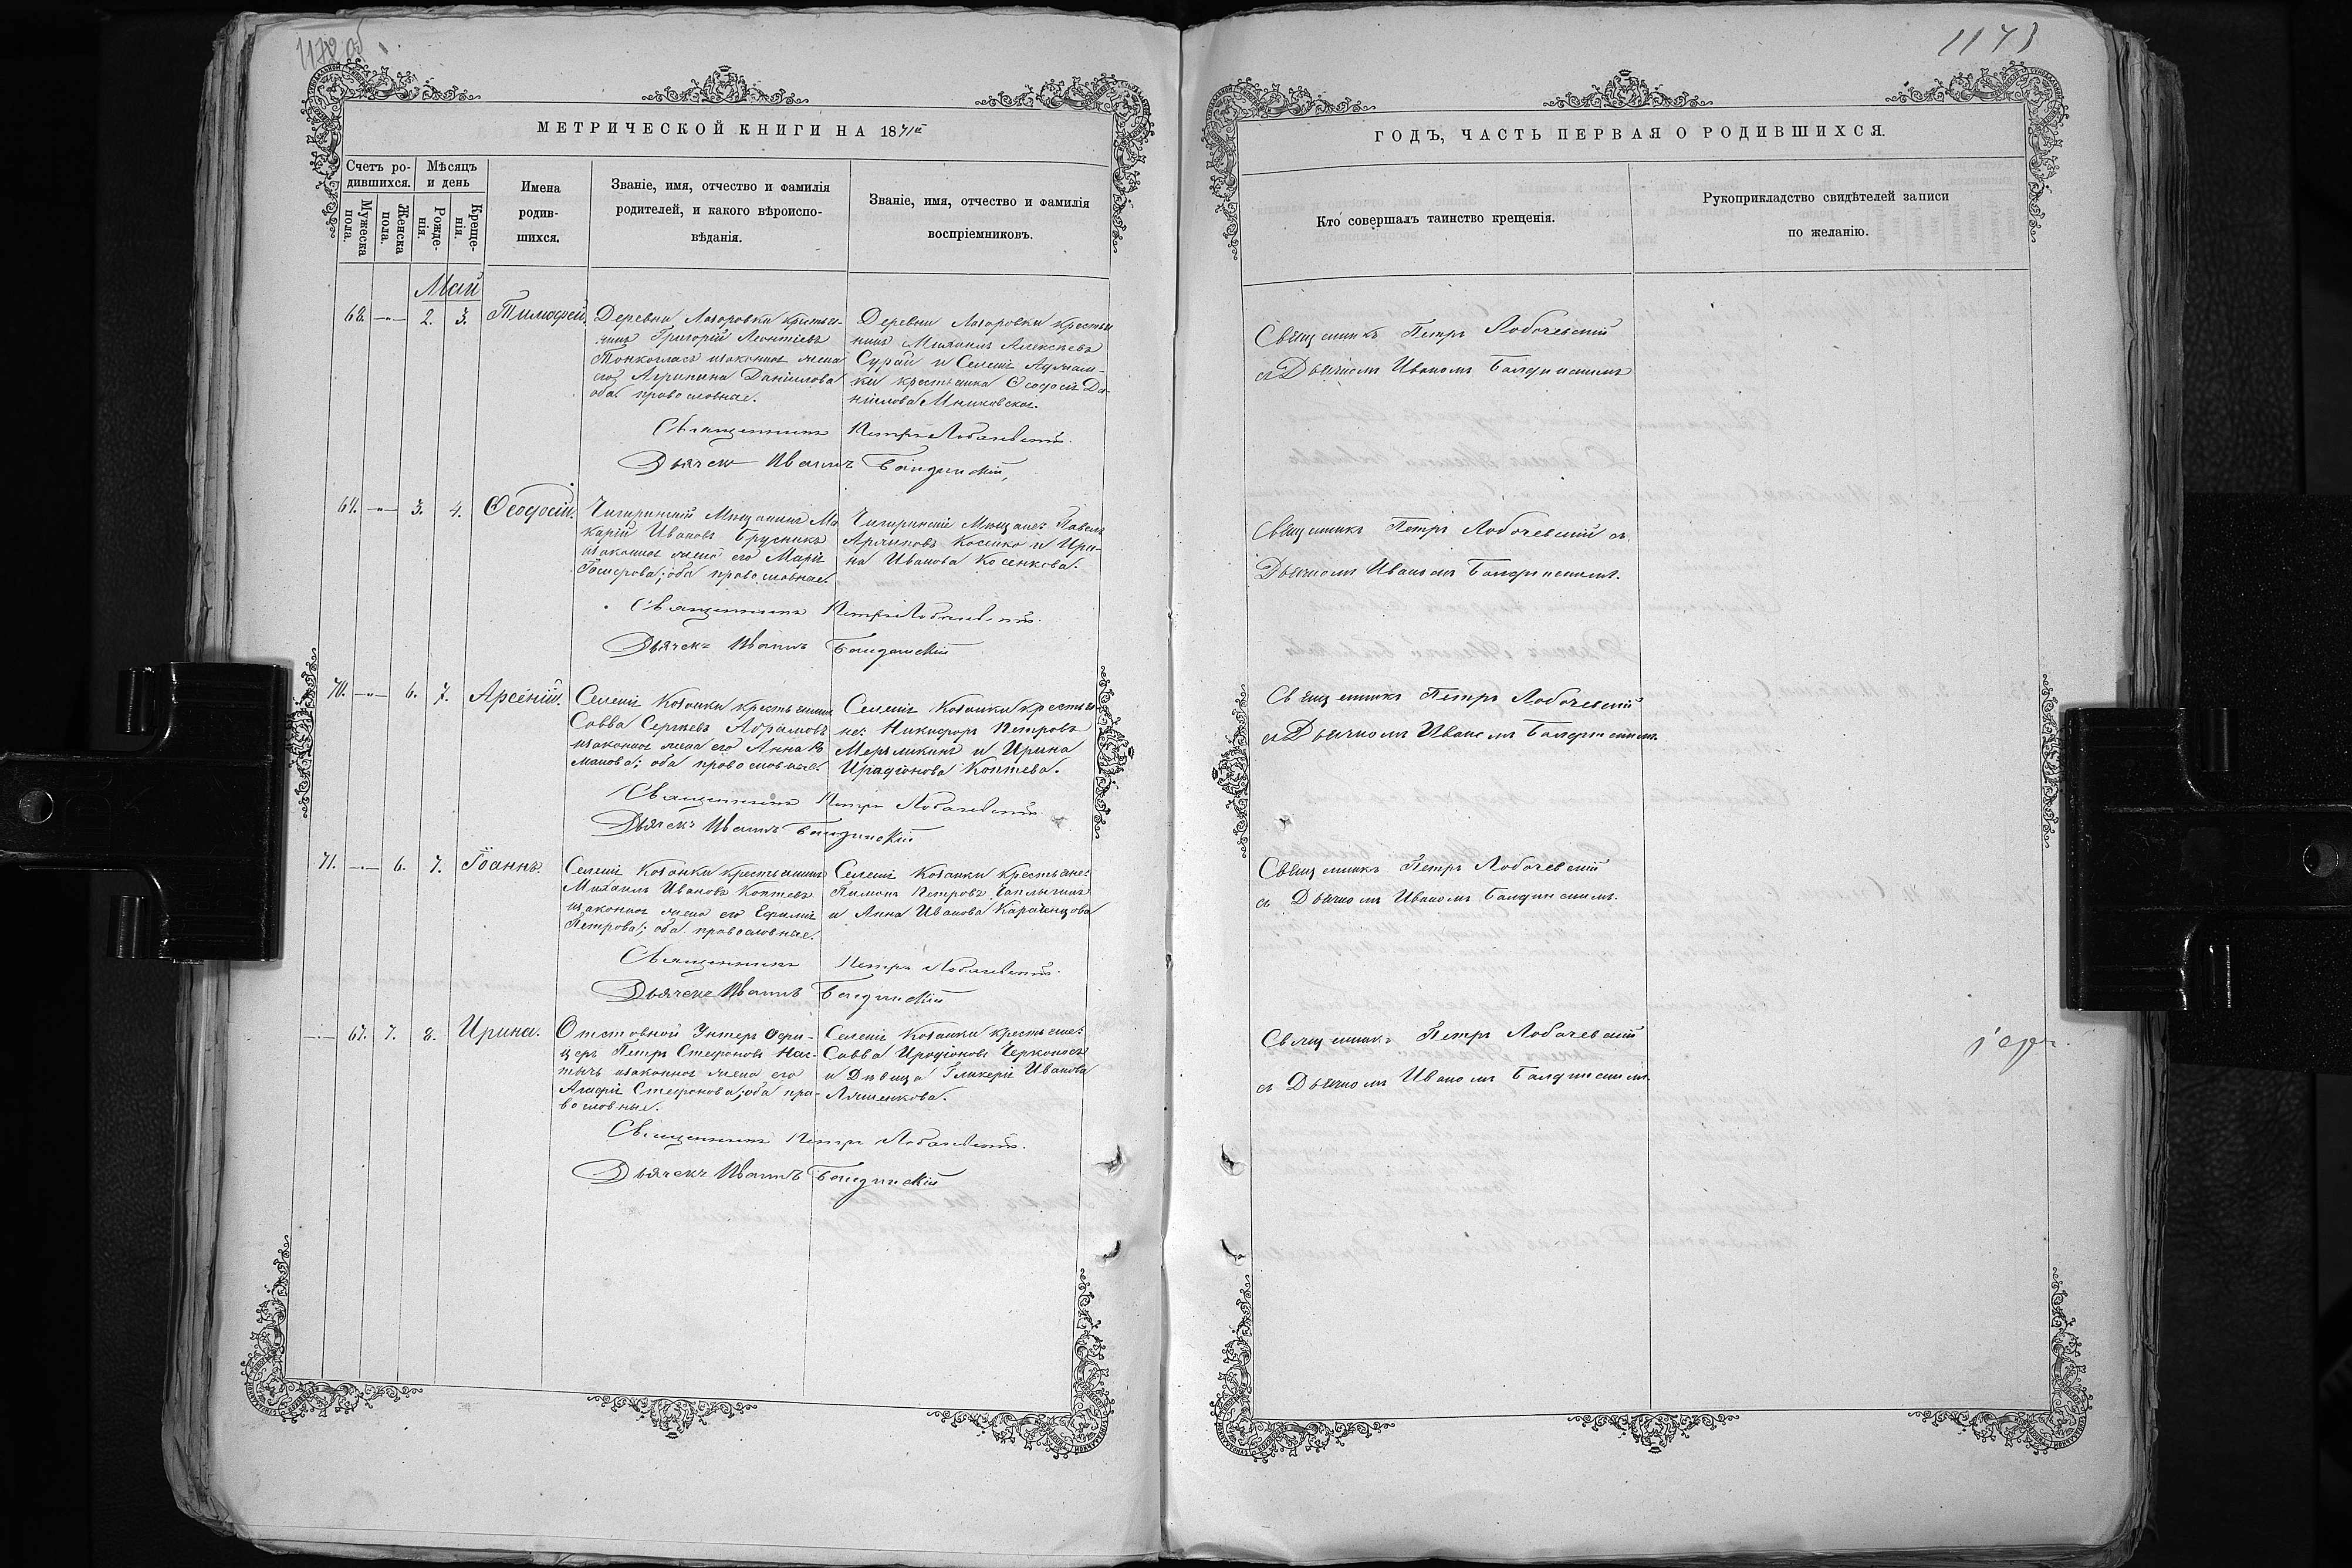 1172 об
МЕТРИЧЕСКОЙ КНИГИ НА 1871й
Счетъ ро-
дившихся.
Мужеска
пола.
Женска
пола.
Мѣсяцъ
и день
Рожде-
нія.
Креще-
нія.
Имена
родив-
шихся.
Званіе, имя, отчество и фамилія
родителей, и какого вѣроиспо-
вѣданія.
Званіе, имя, отчество и фамилія
воспріемниковъ.
Май
68. —„— 2. 3. Тимофей.
Деревни крестья-
нинъ Григорій Леонтіевъ
законная жена
его Агрипина Даніилова
оба православные.
Деревни крестья
нинъ Михаилъ Алексѣевъ
Сурай и Селенія
ки крестьянка Ѳеодосія Да-
ніилова
Священникъ Петръ Лобачевскій.
Дьячекъ Иванъ Балдинскій,
69. —„— 3. 4. Ѳеодосій.
Чигиринскій Мѣщанинъ Ма
карій Ивановъ Брусникъ
законная жена его Марія
оба православные.
Чигиринскіе Мѣщане: Павелъ
Косенко и Ири-
на Иванова Косенкова.
Священникъ Петръ Лобачевскій.
Дьячекъ Иванъ Балдинскій
70. —„— 6. 7. Арсеній.
Селенія крестьянинъ
Савва Сергѣевъ Абрамовъ
законная жена его Анна Ро
манова; оба православные.
Селенія крестья
не: Никифоръ Петровъ
и Ирина
Иродіонова Коптева.
Священникъ Петръ Лобачевскій.
Дьячекъ Иванъ Балдинскій
71. —„— 6. 7. Іоаннъ.
Селенія крестьянинъ
Михаилъ Ивановъ Коптевъ
законная жена его Ефимія
Петрова; оба православные.
Селенія крестьяне:
Петровъ Чаплыгинъ
и Анна Иванова
Священникъ Петръ Лобачевскій.
Дьячекъ Иванъ Балдинскій
—„— 67. 7. 8. Ирина.
Отставной Унтеръ Офи-
церъ Петръ Стефановъ
законная жена его
Агафія Стефанова; оба пра-
вославные.
Селенія крестьяне:
Савва Иродіоновъ
и Дѣвица Гликерія Иванова
Ляшенкова.
Священникъ Петръ Лобачевскій.
Дьячекъ Иванъ Балдинскій
1173
ГОДЪ, ЧАСТЬ ПЕРВАЯ О РОДИВШИХСЯ.
Кто совершалъ таинство крещенія.
Рукоприкладство свидѣтелей записи
по желанію.
Священникъ Петръ Лобачевскій
съ Дьячкомъ Иваномъ Балдинскимъ
Священникъ Петръ Лобачевскій съ
Дьячкомъ Иваномъ Балдинскимъ.
Священникъ Петръ Лобачевскій
съ Дьячкомъ Иваномъ Балдинскимъ.
Священникъ Петръ Лобачевскій
съ Дьячкомъ Иваномъ Балдинскимъ.
Священникъ Петръ Лобачевскій
съ Дьячкомъ Иваномъ Балдинскимъ.